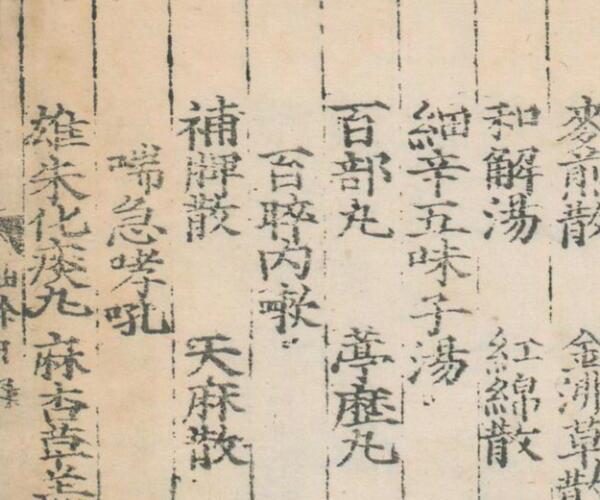 麥煎散 金沸草散
和解湯 紅綿散
細辛五味子湯
百部丸 葶藶丸
百晬内嗽
補脾散 天麻散
喘急哮吼
雄朱化痰丸 麻杏草